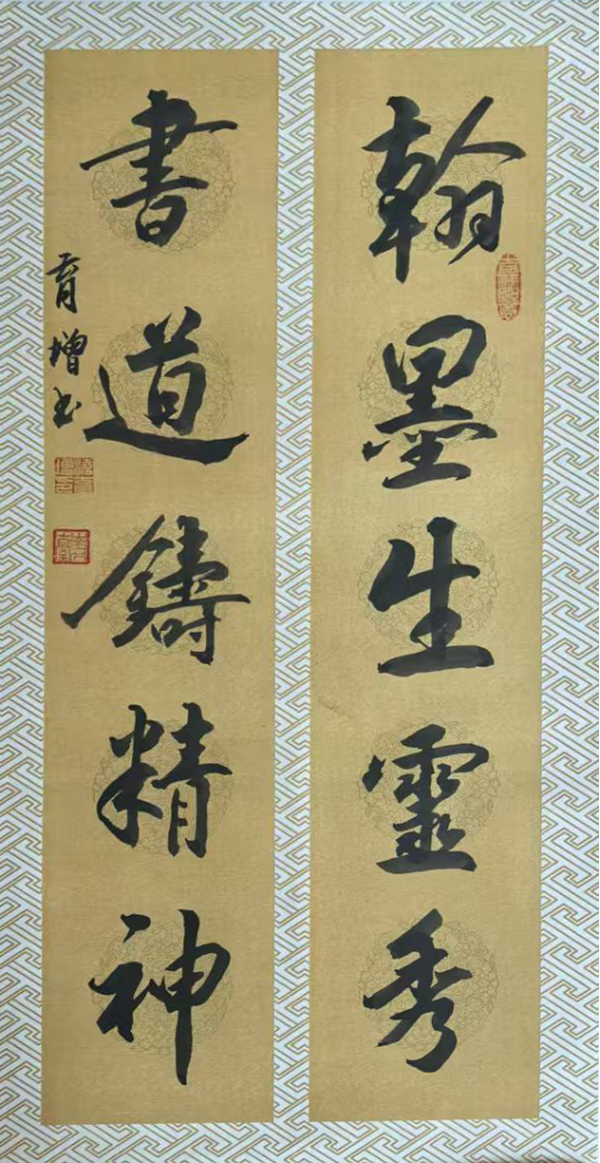 翰墨生靈秀
書道鑄精神
育增书